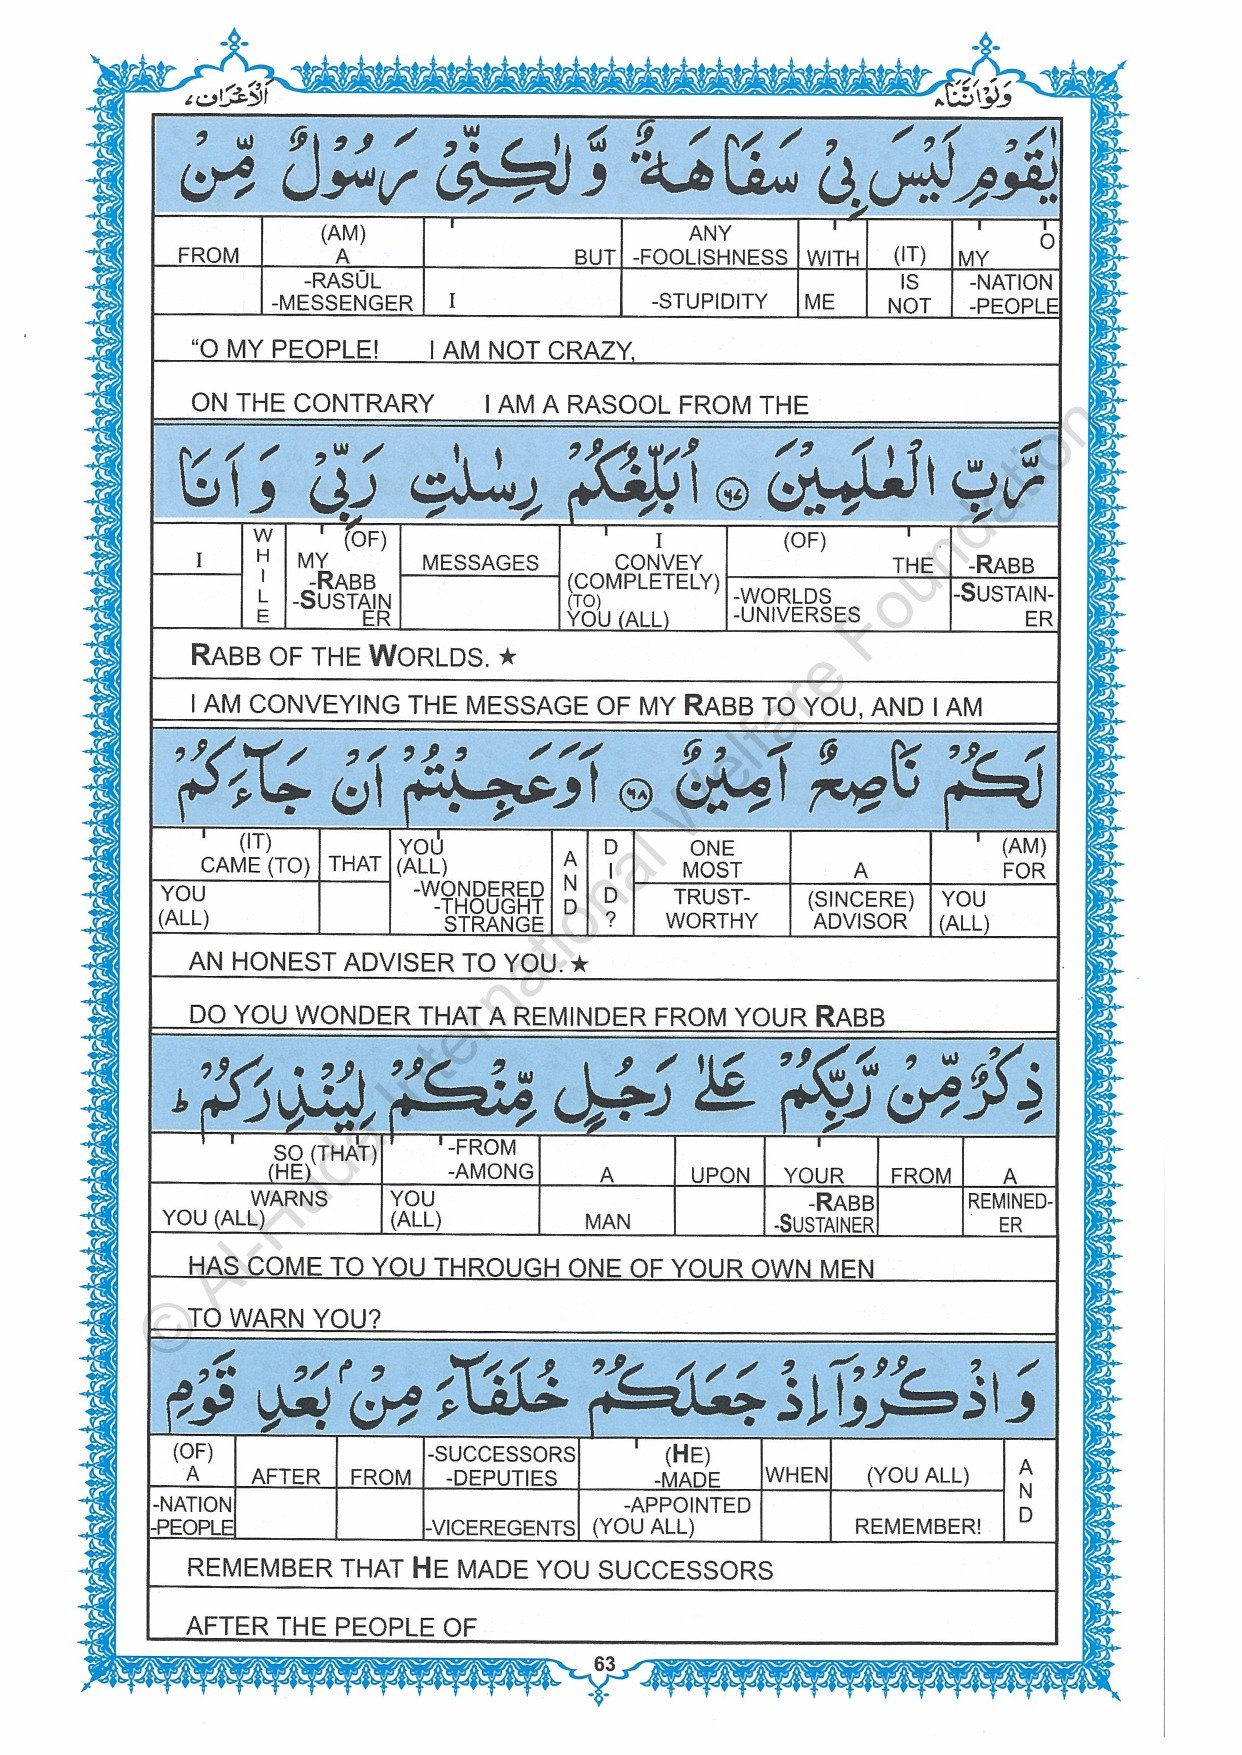 وَلَوْ اَنَّنَا ۸
اَلْاَعْرَاف ۷
يٰقَوْمِ لَيْسَ بِىْ سَفَاهَةٌ وَّلٰكِنِّىْ رَسُوْلٌ مِّنْ
O MY -NATION -PEOPLE
(IT) IS NOT
WITH ME
ANY -FOOLISHNESS -STUPIDITY
BUT I
(AM) A -RASŪL -MESSENGER
FROM
“O MY PEOPLE! I AM NOT CRAZY,
ON THE CONTRARY I AM A RASOOL FROM THE
رَّبِّ الْعٰلَمِيْنَ ۶۷ اُبَلِّغُكُمْ رِسٰلٰتِ رَبِّىْ وَ اَنَا
-RABB -SUSTAIN-ER
(OF) THE -WORLDS -UNIVERSES
I CONVEY (COMPLETELY) (TO) YOU (ALL)
MESSAGES
(OF) MY -RABB -SUSTAIN ER
WHILE
I
RABB OF THE WORLDS. ★
I AM CONVEYING THE MESSAGE OF MY RABB TO YOU, AND I AM
لَكُمْ نَاصِحٌ اَمِيْنٌ ۶۸ اَوَعَجِبْتُمْ اَنْ جَآءَكُمْ
(AM) FOR YOU (ALL)
A (SINCERE) ADVISOR
ONE MOST TRUST-WORTHY
DID?
AND
YOU (ALL) -WONDERED -THOUGHT STRANGE
THAT
(IT) CAME (TO) YOU (ALL)
AN HONEST ADVISER TO YOU. ★
DO YOU WONDER THAT A REMINDER FROM YOUR RABB
ذِكْرٌ مِّنْ رَّبِّكُمْ عَلٰى رَجُلٍ مِّنْكُمْ لِيُنْذِرَكُمْ ؕ
A REMINED-ER
FROM
YOUR -RABB -SUSTAINER
UPON
A MAN
-FROM -AMONG YOU (ALL)
SO (THAT) (HE) WARNS YOU (ALL)
HAS COME TO YOU THROUGH ONE OF YOUR OWN MEN
TO WARN YOU?
وَ اذْكُرُوْٓا اِذْ جَعَلَكُمْ خُلَفَآءَ مِنْۢ بَعْدِ قَوْمِ
AND
(YOU ALL) REMEMBER!
WHEN
(HE) -MADE -APPOINTED (YOU ALL)
-SUCCESSORS -DEPUTIES -VICEREGENTS
FROM
AFTER
(OF) A -NATION -PEOPLE
REMEMBER THAT HE MADE YOU SUCCESSORS
AFTER THE PEOPLE OF
63
© Al-Huda International Welfare Foundation